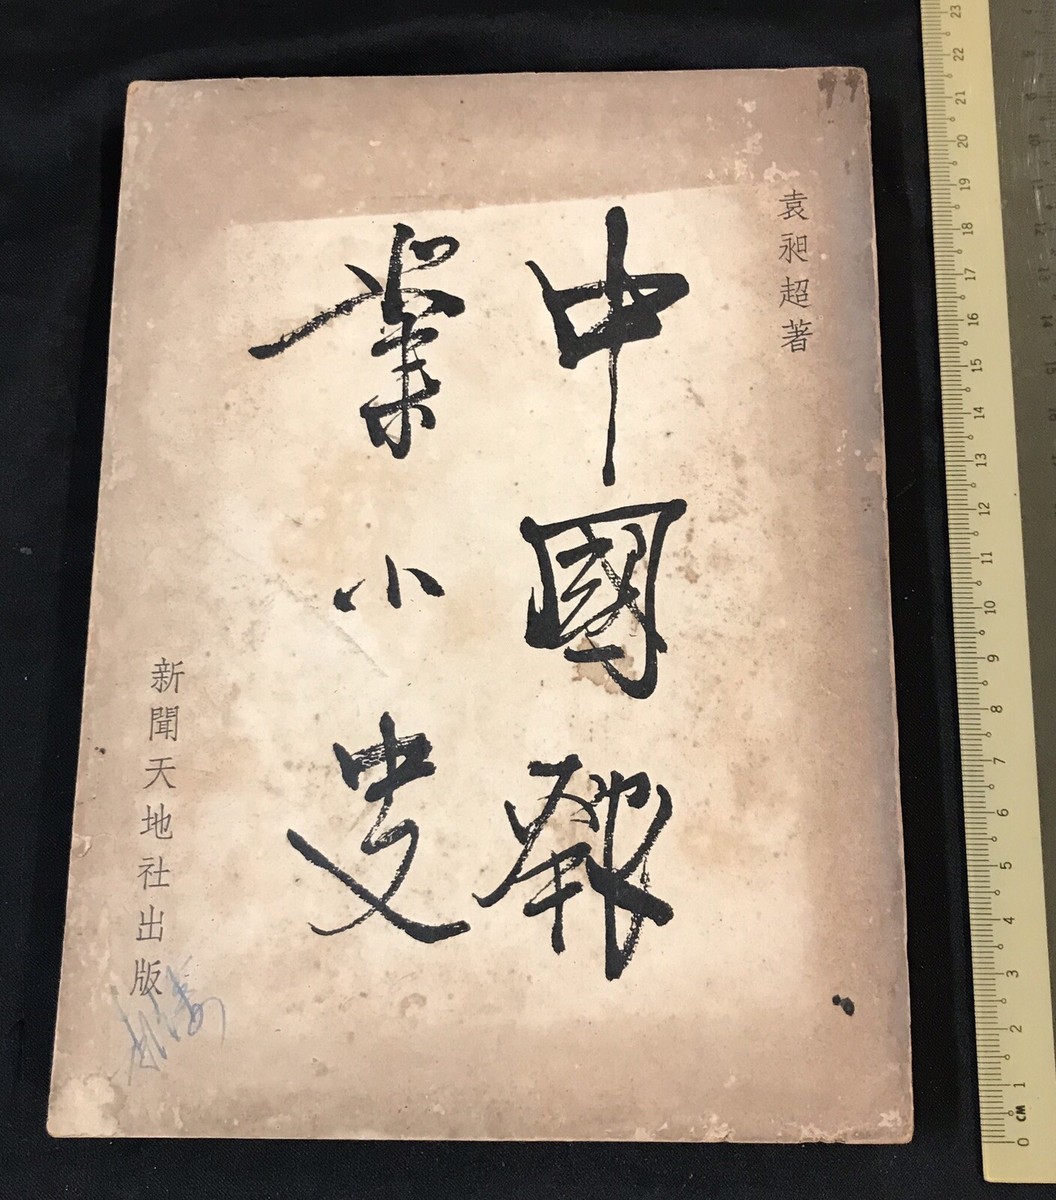 袁昶超著
中國報
業小史
新聞天地社出版
23
22
21
20
19
18
17
16
15
14
13
12
11
10
9
8
7
6
5
4
3
2
1
0 CM